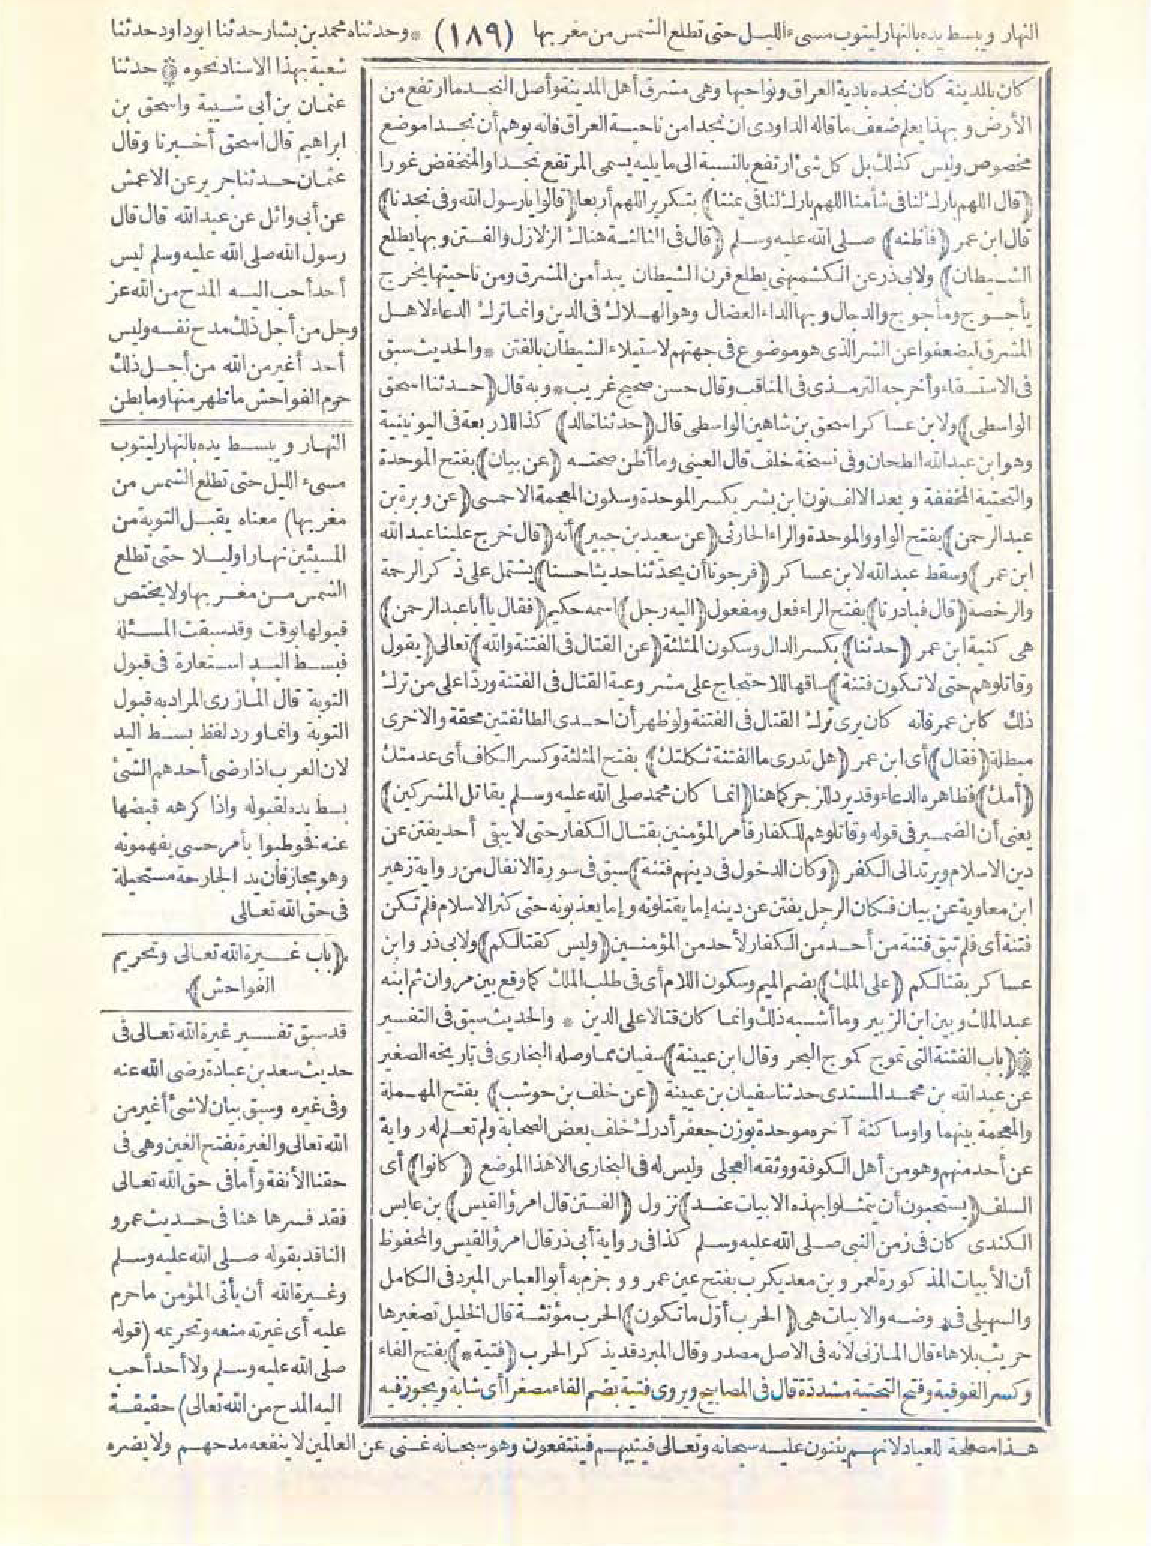 النهار ويبسط يده بالنهار ليتوب مسيء الليل حتى تطلع الشمس من مغربها (١٨٩) * وحدثناه محمد بن بشار حدثنا ابوداود حدثنا
كان بالمدينة كان نجده بادية العراق ونواحيها وهى مشرق أهل المدينة وأصل النجد ما ارتفع من
الأرض وبهذا يعلم ضعف ما قاله الداودى ان نجدا من ناحية العراق فانه يوهم أن نجدا موضع
مخصوص وليس كذلك بل كل شئ ارتفع بالنسبة الى ما يليه يسمى المرتفع نجدا والمنخفض غورا
(قال اللهم بارك لنا فى شأمنا اللهم بارك لنا فى يمننا) بتكرير اللهم أربعا (قالوا يا رسول الله وفى نجدنا)
قال ابن عمر (فأظنه) صلى الله عليه وسلم (قال فى الثالثة هناك الزلازل والفتن وبها يطلع
الشيطان) ولابى ذر عن الكشميهنى يطلع قرن الشيطان يبدأ من المشرق ومن ناحيتها يخرج
يأجوج ومأجوج والدجال وبها الداء العضال وهو الهلاك فى الدين وانما ترك الدعاء لاهل
المشرق ليضعفوا عن الشر الذى هو موضوع فى جهتهم لاستيلاء الشيطان بالفتن * والحديث سبق
فى الاستسقاء وأخرجه الترمذى فى المناقب وقال حسن صحيح غريب * وبه قال (حدثنا اسحق
الواسطى) ولابن عساكر اسحق بن شاهين الواسطى قال (حدثنا خالد) كذا للاربعة فى اليونينية
وهو ابن عبد الله الطحان وفى نسخة خلف قال العينى وما أظن صحته (عن بيان) بفتح الموحدة
والتحتية المخففة وبعد الالف نون ابن بشر بكسر الموحدة وسكون المعجمة الاحمسى (عن وبرة بن
عبد الرحمن) بفتح الواو والموحدة والراء الحارثى (عن سعيد بن جبير) أنه (قال خرج علينا عبد الله
ابن عمر) وسقط عبد الله لابن عساكر (فرجونا أن يحدثنا حديثا حسنا) يشتمل على ذكر الرحمة
والرخصة (قال فبادرنا) بفتح الراء فعل ومفعول (اليه رجل) اسمه حكيم (فقال يا أبا عبد الرحمن)
هى كنية ابن عمر (حدثنا) بكسر الدال وسكون المثلثة (عن القتال فى الفتنة والله) تعالى (يقول
وقاتلوهم حتى لا تكون فتنة) ساقها للاحتجاج على مشروعية القتال فى الفتنة وردا على من ترك
ذلك كابن عمر فانه كان يرى ترك القتال فى الفتنة ولو ظهر أن احدى الطائفتين محقة والاخرى
مبطلة (فقال) أى ابن عمر (هل تدرى ما الفتنة ثكلتك) بفتح المثلثة وكسر الكاف أى عدمتك
(أمك) فظاهره الدعاء وقد يرد للزجر كما هنا (انما كان محمد صلى الله عليه وسلم يقاتل المشركين)
يعنى أن الضمير فى قوله وقاتلوهم للكفار فأمر المؤمنين بقتال الكفار حتى لا يبقى أحد يفتن عن
دين الاسلام ويرتد الى الكفر (وكان الدخول فى دينهم فتنة) سبق فى سورة الانفال من رواية زهير
ابن معاوية عن بيان فكان الرجل يفتن عن دينه إما يقتلونه وإما يعذبونه حتى كثر الاسلام فلم تكن
فتنة أى فلم تبق فتنة من أحد من الكفار لأحد من المؤمنين (وليس كقتالكم) ولابى ذر وابن
عساكر بقتالكم (على الملك) بضم الميم وسكون اللام أى فى طلب الملك كما وقع بين مروان ثم ابنه
عبد الملك وبين ابن الزبير وما أشبه ذلك وانما كان قتالا على الدين * والحديث سبق فى التفسير
* (باب الفتنة التى تموج كموج البحر وقال ابن عيينة) سفيان مما وصله البخارى فى تاريخه الصغير
عن عبد الله بن محمد المسندى حدثنا سفيان بن عيينة (عن خلف بن حوشب) بفتح المهملة
والمعجمة بينهما واو ساكنة آخره موحدة بوزن جعفر أدرك خلف بعض الصحابة ولم تعلم له رواية
عن أحد منهم وهو من أهل الكوفة ووثقه العجلى وليس له فى البخارى الا هذا الموضع (كانوا) أى
السلف (يستحبون أن يتمثلوا بهذه الابيات عند) نزول (الفتن قال امرؤ القيس) بن عابس
الكندى كان فى زمن النبى صلى الله عليه وسلم كذا فى رواية أبى ذر قال امرؤ القيس والمحفوظ
أن الأبيات المذكورة لعمرو بن معديكرب بفتح عين عمرو وجزم به أبو العباس المبرد فى الكامل
والسهيلى فى روضه والابيات هى (الحرب أول ما تكون) الحرب مؤنثة قال الخليل تصغيرها
حريب بلا هاء قال المازنى لانه فى الاصل مصدر وقال المبرد قد يذكر الحرب (فتية *) بفتح الفاء
وكسر الفوقية وفتح التحتية مشددة قال فى المصابيح ويروى فتية بضم الفاء مصغرا أى شابة ويجوز فيه
شعبة بهذا الاسناد نحوه * حدثنا
عثمان بن أبى شيبة واسحق بن
ابراهيم قال اسحق أخبرنا وقال
عثمان حدثنا جرير عن الاعمش
عن أبى وائل عن عبد الله قال قال
رسول الله صلى الله عليه وسلم ليس
أحد أحب اليه المدح من الله عز
وجل من أجل ذلك مدح نفسه وليس
أحد أغير من الله من أجل ذلك
حرم الفواحش ما ظهر منها وما بطن
النهار ويبسط يده بالنهار ليتوب
مسىء الليل حتى تطلع الشمس من
مغربها) معناه يقبل التوبة من
المسيئين نهارا وليلا حتى تطلع
الشمس من مغربها ولا يختص
قبولها بوقت وقد سبقت المسئلة
فبسط اليد استعارة فى قبول
التوبة قال المازرى المراد به قبول
التوبة وانما ورد لفظ بسط اليد
لان العرب اذا رضى أحدهم الشئ
بسط يده لقبوله واذا كرهه قبضها
عنه فخوطبوا بأمر حسى يفهمونه
وهو مجاز فان يد الجارحة مستحيلة
فى حق الله تعالى
(باب غيرة الله تعالى وتحريم
الفواحش)
قد سبق تفسير غيرة الله تعالى فى
حديث سعد بن عبادة رضى الله عنه
وفى غيره وسبق بيان لا شئ أغير من
الله تعالى والغيرة بفتح الغين وهى فى
حقنا الأنفة وأما فى حق الله تعالى
فقد فسرها هنا فى حديث عمرو
الناقد بقوله صلى الله عليه وسلم
وغيرة الله أن يأتى المؤمن ما حرم
عليه أى غيرته منعه وتحريمه (قوله
صلى الله عليه وسلم ولا أحد أحب
اليه المدح من الله تعالى) حقيقة
هذا مصلحة للعباد لانهم يثنون عليه سبحانه وتعالى فيثيبهم فينتفعون وهو سبحانه غنى عن العالمين لا ينفعه مدحهم ولا يضره